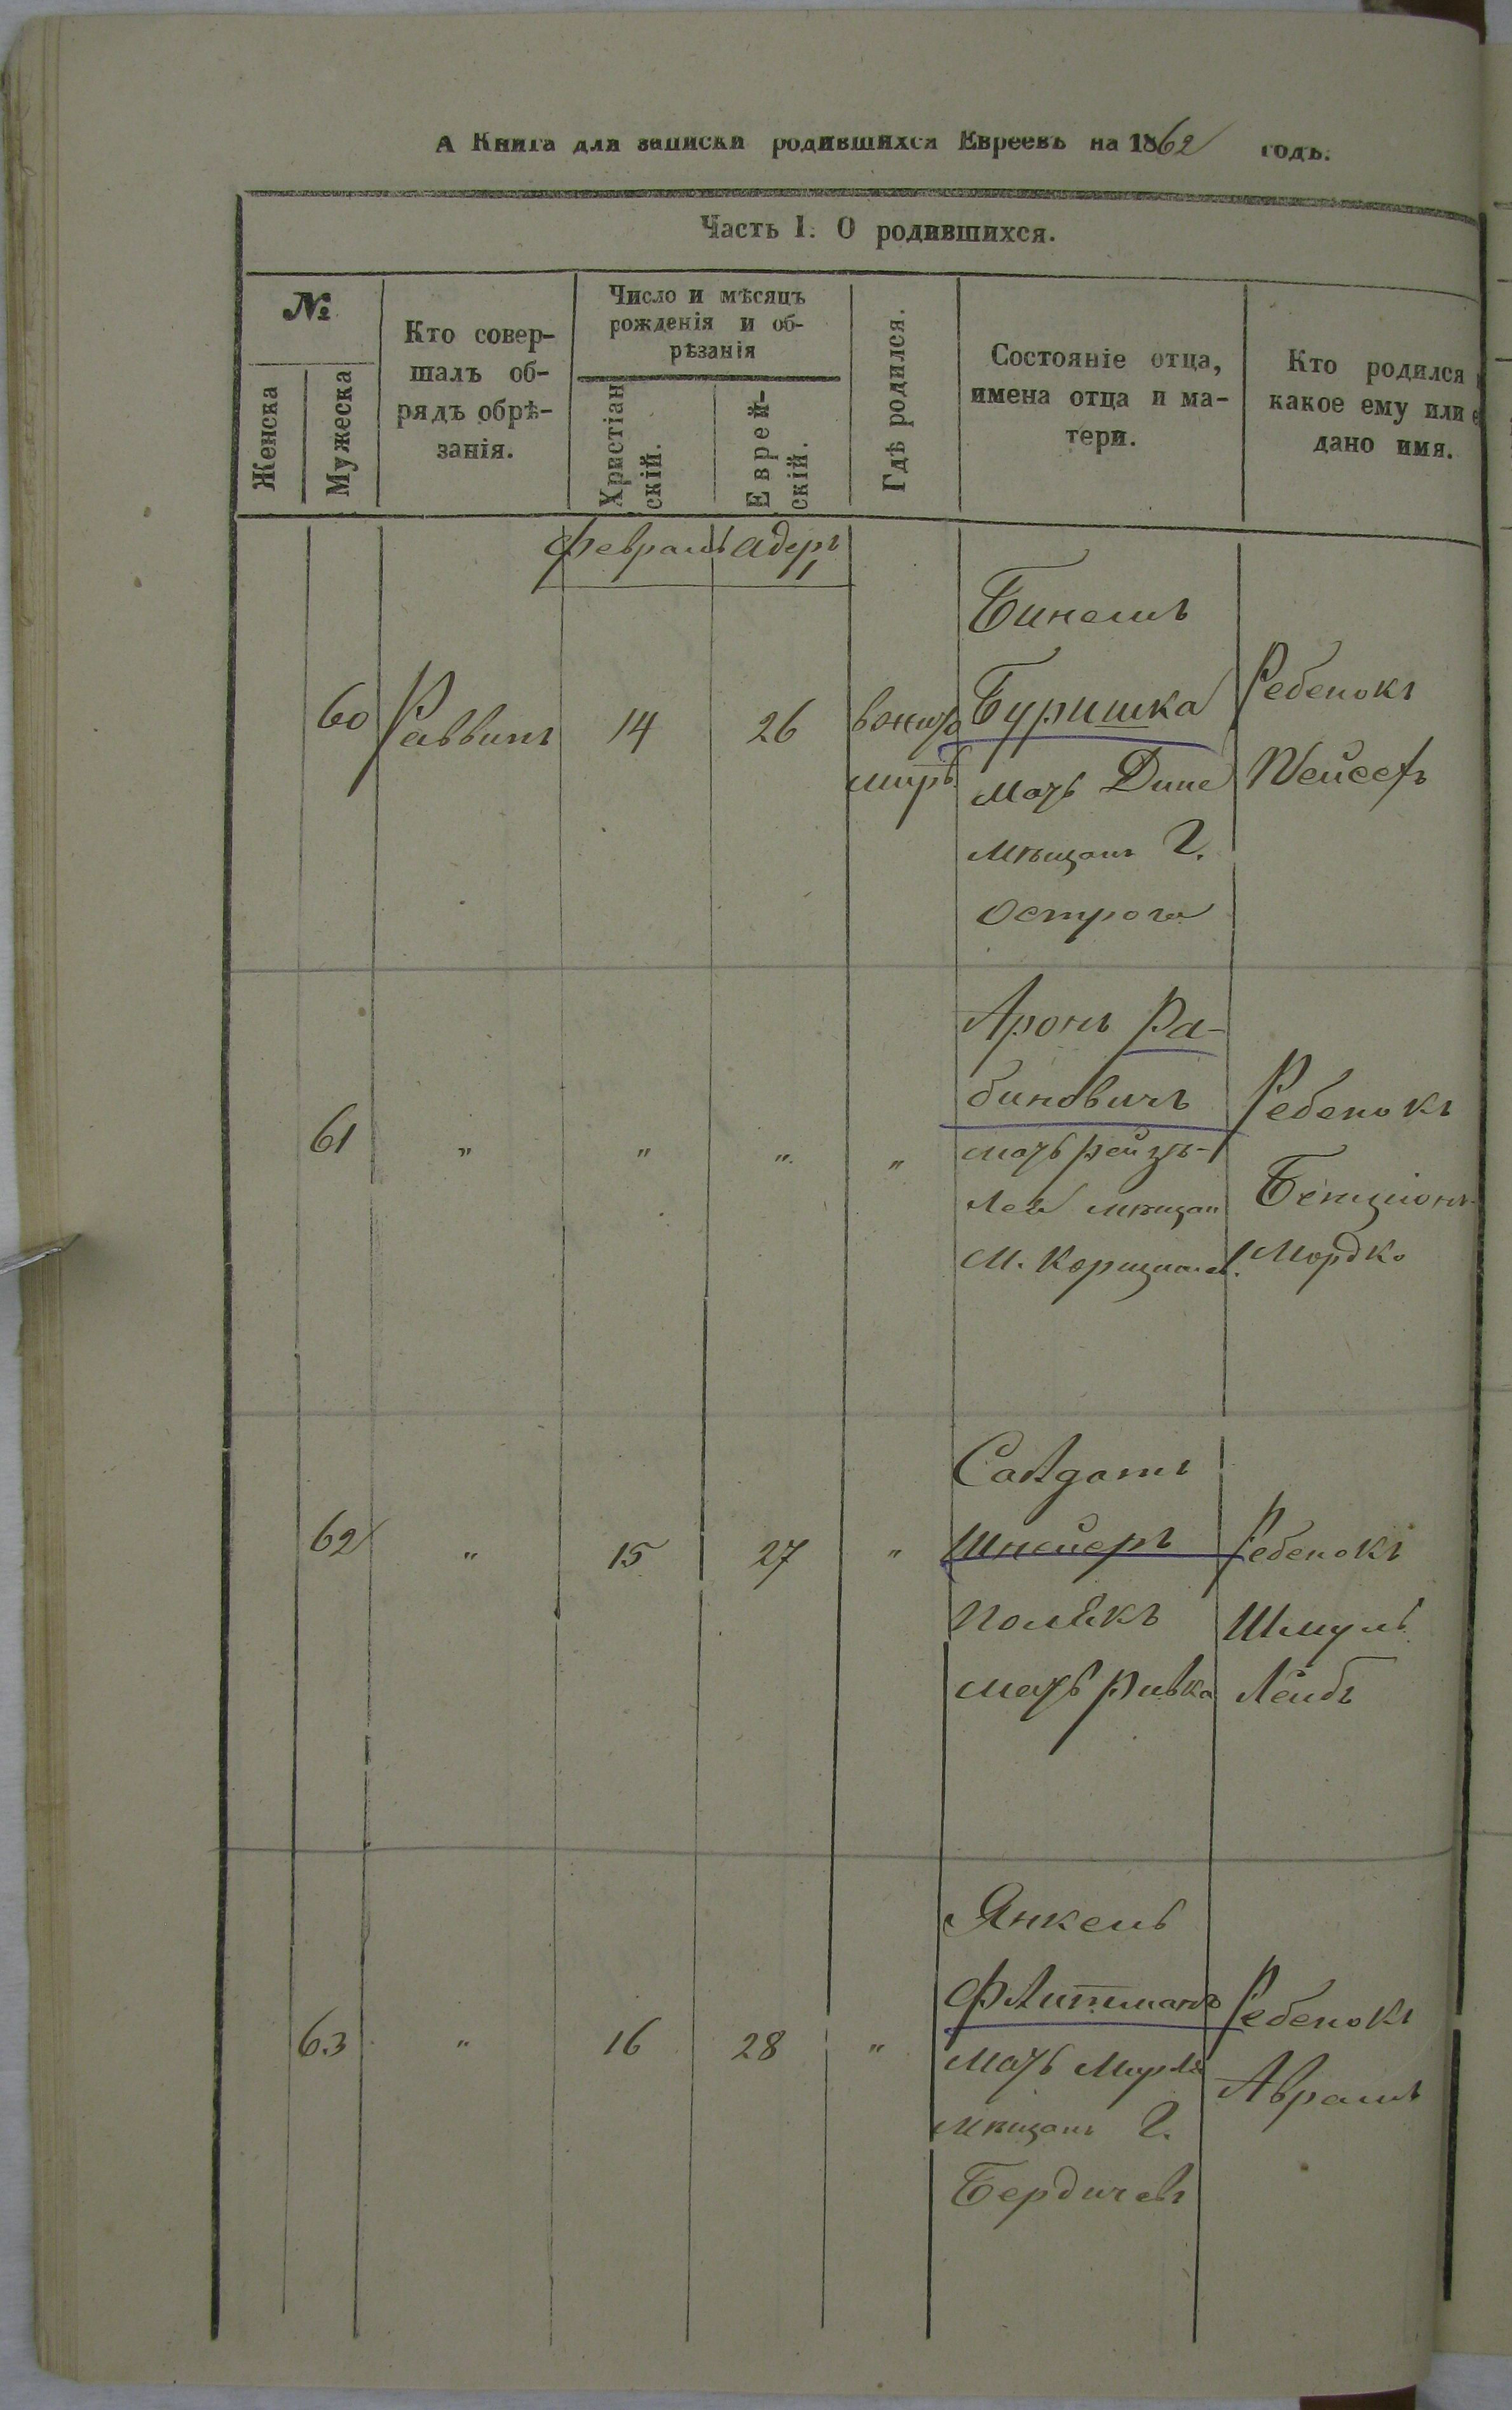 А Книга для записки родившихся Евреевъ на 1862 годъ.
Часть I. О родившихся.
№
Женска
Мужеска
Кто совер-
шалъ об-
рядъ обрѣ-
занія.
Число и мѣсяцъ
рожденія и об-
рѣзанія
Христіан
скій.
Еврей-
скій.
Гдѣ родился.
Состояніе отца,
имена отца и ма-
тери.
Кто родился
какое ему или е
дано имя.
февраль адеръ
60
Раввинъ
14
26
Бинемъ
Буришка
мать Дине
мѣщанъ Г.
Острога
Ребенокъ
61
"
"
"
"
Аронъ Ра-
биновичъ
мать Рейзъ-
Лея мѣщан
М.
Ребенокъ
Бенціонъ
Мордко
62
"
15
27
"
Салдатъ
Шнеиеръ
Полякъ
мать Ривка
Ребенокъ
Шмуль
Лейбъ
63
"
16
28
"
Янкель
Флитманъ
мать Мирля
мѣщанъ Г.
Бердичевъ
Ребенокъ
Аврамъ